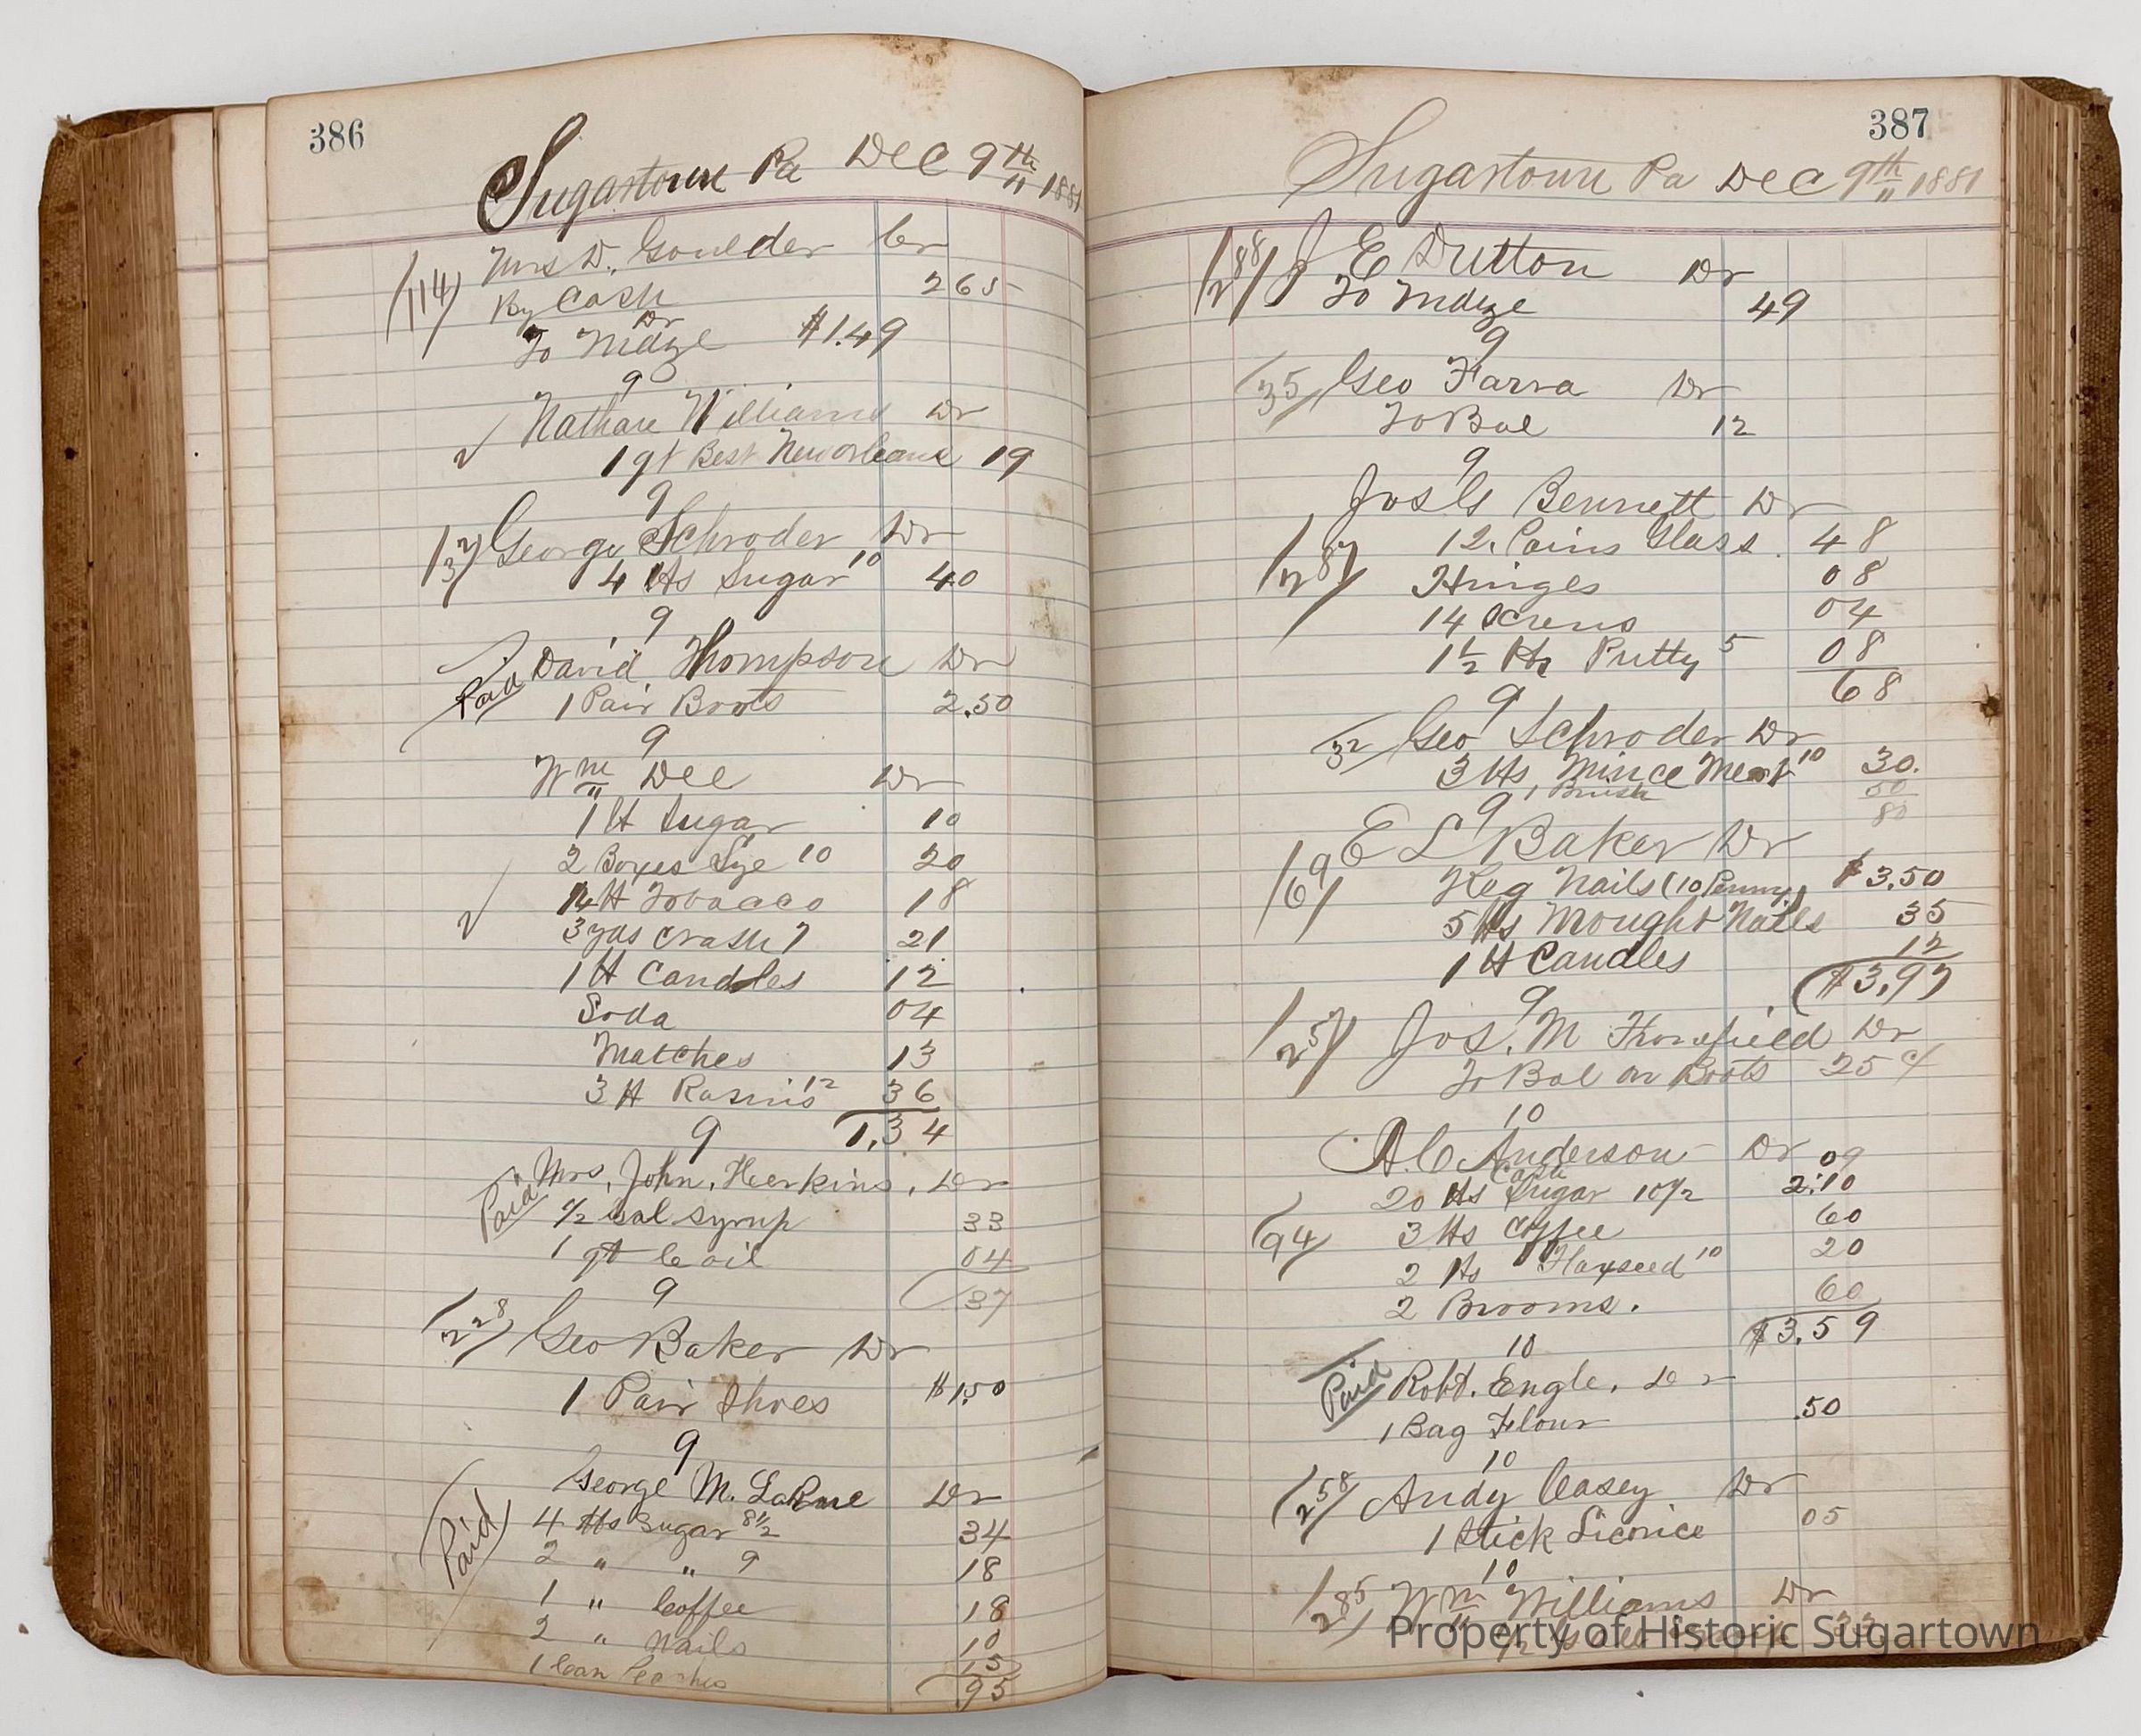 386
Sugartown Pa Dec 9th 1881
(114) Mrs D. Goulder Cr
By Cash 265
Dr
To Mdze $1.49
9
Nathan Williams Dr
1 qt Best New orleans 19
9
(132) George Schroder Dr
4 lbs Sugar 10 40
9
Paid David Thompson Dr
1 Pair Boots 2.50
9
Wm Dee Dr
1 lb Sugar 10
2 Boxes Lye 10 20
1/4 lb Tobacco 18
3 yds Crash 7 21
1 lb Candles 12
Soda 04
Matches 13
3 lb Rasins 12 36
9 1.34
Paid Mrs. John. Heerkins. Dr
1/2 Gal Syrup 33
1 qt C oil 04
9 37
(228) Geo Baker Dr
1 Pair Shoes $1.50
9
George M. LaRue Dr
Paid 4 lbs Sugar 8 1/2 34
2 " " 9 18
1 " Coffee 18
2 " Nails 10
1 Can Peaches 15
95
387
Sugartown Pa Dec 9th 1881
(288) J E Dutton Dr
To Mdze 49
9
(35) Geo Farra Dr
To Bal 12
9
Jos G Bennett Dr
(287) 12 Pains Glass 48
Hinges 08
14 Screws 04
1 1/2 lb Putty 5 08
9 68
32 Geo Schroder Dr
3 lbs Mince Meat 10 30
9 1 Brush 50
80
E L Baker Dr
(69) Keg Nails (10 Penny) $3.50
5 lbs Wrought Nails 35
1 lb Candles 12
9 $3.97
(257) Jos. M Thomfield Dr
To Bal on Boots 25 c/
10
A. C Anderson Dr 09
Cash
20 lbs Sugar 10 1/2 2.10
(94) 3 lbs Coffee 60
2 lbs Flaxseed 10 20
2 Brooms. 60
10 $3.59
Paid Robt. Engle. Dr
1 Bag Flour .50
10
(258) Andy Casey Dr
1 Stick Licorice 05
10
(285) Wm Williams Dr
1/2 33
Property of Historic Sugartown